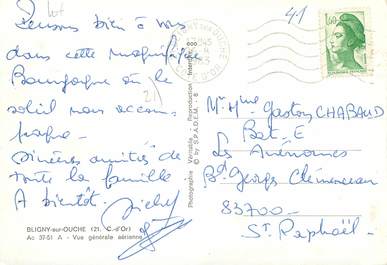 Pensons bien à vous
dans cette magnifique
Bourgogne où le
soleil nous accom-
pagne.
Sincères amitiés de
toute la famille
A bientôt.
BLIGNY-sur-OUCHE (21. C.-d'Or)
Ac 37-51 A - Vue générale aérienne
Photographie Véritable - Reproduction Interdite
© by S.P.A.D.E.M.
41
21
1,60
M. Mme Gaston CHABAUD
Bat. E
Les Anémones
Bd Georges Clémenceau
83700
St. Raphaël.